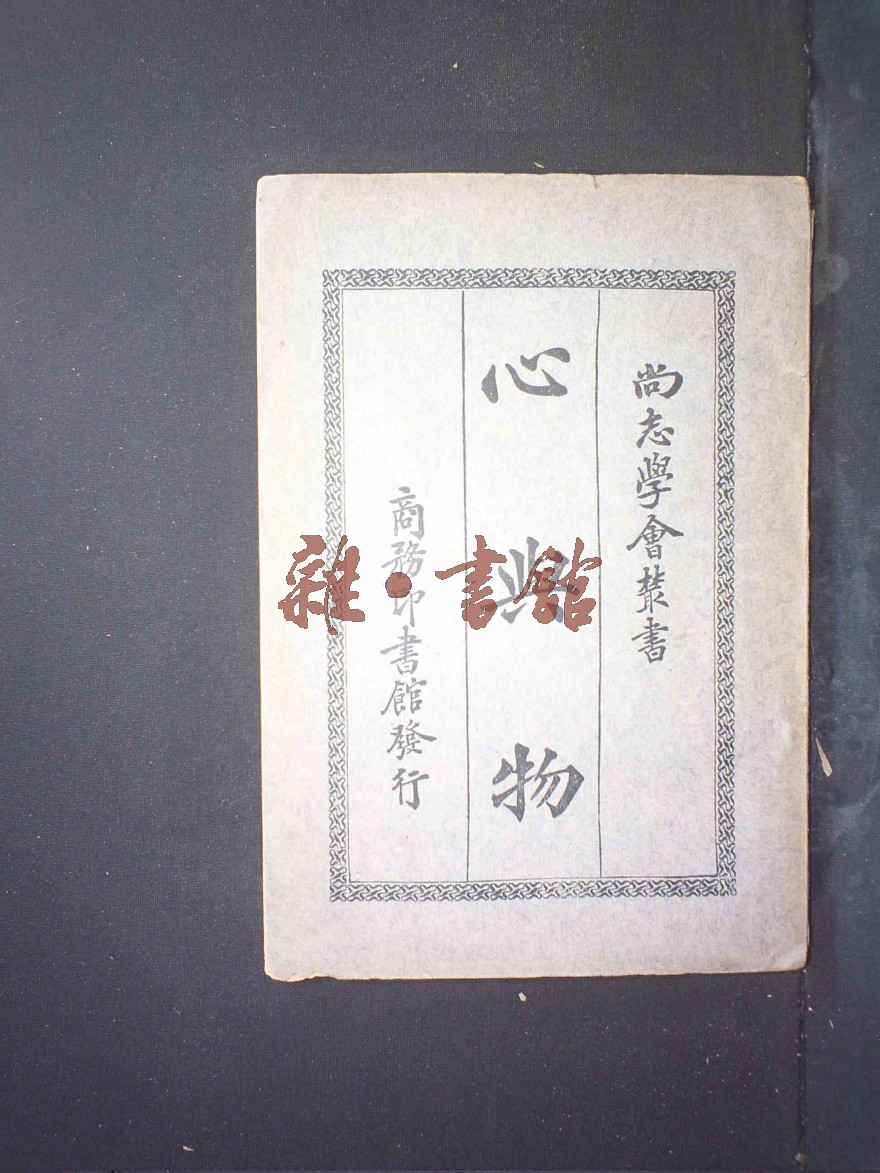 尚志學會叢書
心與物
商務印書館發行
雜·書館